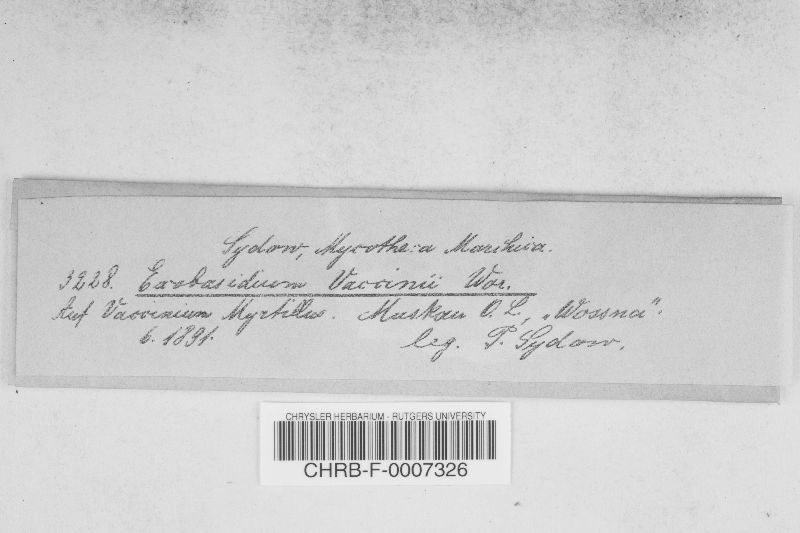 Sydow, Mycotheca Marchica.
3228. Exobasidium Vaccinii Wor.
Auf Vaccinium Myrtillus. Muskau O. L., „Wossna".
6. 1891. leg. P. Sydow.
CHRYSLER HERBARIUM - RUTGERS UNIVERSITY
CHRB-F-0007326